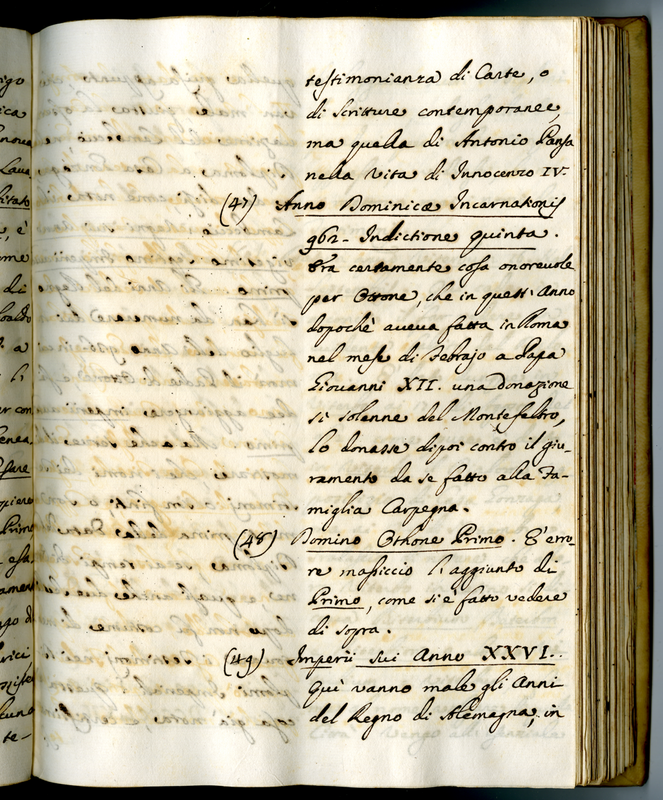 testimonianza di Carte, o
di Scritture contemporanee,
ma quella di Antonio Pansa
nella Vita di Innocenzo IV.
(47) Anno Dominicæ Incarnationis
962- Indictione quinta.
Era certamente cosa onorevole
per Ottone, che in quest' Anno
dopochè aveva fatta in Roma
nel mese di Febrajo a Papa
Giovanni XII. una donazione
sì solenne del Montefeltro,
lo donasse dipoi contro il giu-
ramento da se fatto alla Fa-
miglia Carpegna.
(48) Domino Othone Primo. E' erro-
re masiccio l' aggiunto di
Primo, come si è fatto vedere
di sopra.
(49) Imperii sui Anno XXVI..
Qui vanno male gli Anni
del Regno di Alemagna, in